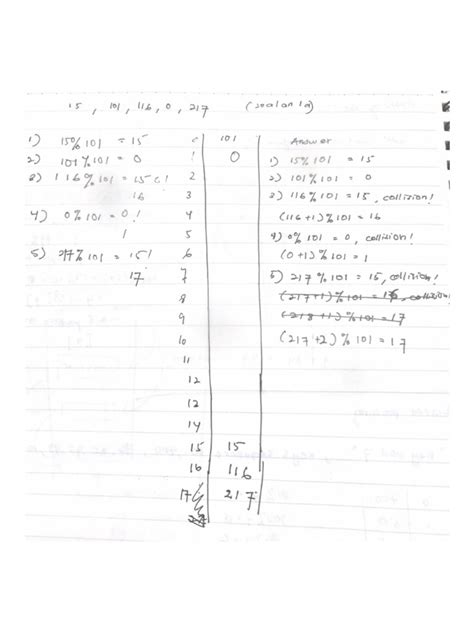 15, 101, 116, 0, 217 (soalan 1a)
1) 15% 101 = 15
2) 101 % 101 = 0
3) 116% 101 = 15 c!
16
4) 0% 101 = 0!
1
5) 217 % 101 = 15!
17
0 101
1 0
2
3
4
5
6
7
8
9
10
11
12
12
14
15 15
16 116
17 217
Answer
1) 15% 101 = 15
2) 101 % 101 = 0
3) 116 % 101 = 15, collision!
(116+1) % 101 = 16
4) 0% 101 = 0, collision!
(0+1) % 101 = 1
5) 217 % 101 = 15, collision!
(217+1) % 101 = 16, collision!
(218+1) % 101 = 17
(217+2) % 101 = 17